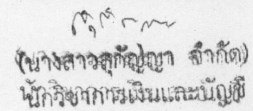 (นางสาวสุกัญญา จำกัด)
นักวิชาการเงินและบัญชี